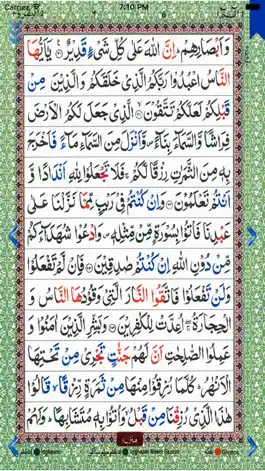 Carrier 7:10 PM
وَاَبْصَارِهِمْ ؕ اِنَّ اللّٰهَ عَلٰى كُلِّ شَىْءٍ قَدِيْرٌ ۟ يٰۤاَيُّهَا
النَّاسُ اعْبُدُوْا رَبَّكُمُ الَّذِىْ خَلَقَكُمْ وَالَّذِيْنَ مِنْ
قَبْلِكُمْ لَعَلَّكُمْ تَتَّقُوْنَ ۟ الَّذِىْ جَعَلَ لَكُمُ الْاَرْضَ
فِرَاشًا وَّالسَّمَآءَ بِنَآءً ۪ وَّاَنْزَلَ مِنَ السَّمَآءِ مَآءً فَاَخْرَجَ
بِهٖ مِنَ الثَّمَرٰتِ رِزْقًا لَّكُمْ ۚ فَلَا تَجْعَلُوْا لِلّٰهِ اَنْدَادًا وَّ
اَنْتُمْ تَعْلَمُوْنَ ۟ وَاِنْ كُنْتُمْ فِىْ رَيْبٍ مِّمَّا نَزَّلْنَا عَلٰى
عَبْدِنَا فَاْتُوْا بِسُوْرَةٍ مِّنْ مِّثْلِهٖ ۪ وَادْعُوْا شُهَدَآءَكُمْ
مِّنْ دُوْنِ اللّٰهِ اِنْ كُنْتُمْ صٰدِقِيْنَ ۟ فَاِنْ لَّمْ تَفْعَلُوْا
وَلَنْ تَفْعَلُوْا فَاتَّقُوا النَّارَ الَّتِىْ وَقُوْدُهَا النَّاسُ وَ
الْحِجَارَةُ ۖۚ اُعِدَّتْ لِلْكٰفِرِيْنَ ۟ وَبَشِّرِ الَّذِيْنَ اٰمَنُوْا وَ
عَمِلُوا الصّٰلِحٰتِ اَنَّ لَهُمْ جَنّٰتٍ تَجْرِىْ مِنْ تَحْتِهَا
الْاَنْهٰرُ ؕ كُلَّمَا رُزِقُوْا مِنْهَا مِنْ ثَمَرَةٍ رِّزْقًا ۙ قَالُوْا
هٰذَا الَّذِىْ رُزِقْنَا مِنْ قَبْلُ ۙ وَاُتُوْا بِهٖ مُتَشَابِهًا ؕ وَلَهُمْ